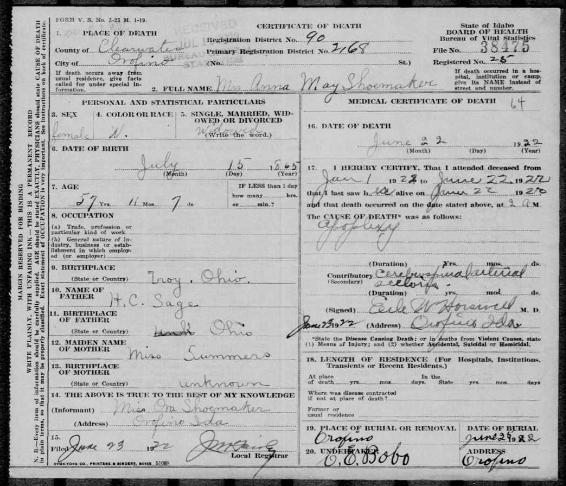 FORM V. S. No. 5-25 M. 1-19.
CERTIFICATE OF DEATH
State of Idaho
BOARD OF HEALTH
Bureau of Vital Statistics
PLACE OF DEATH
County of Clearwater
Registration District No. 90
File No. 38475
City of Orofino
Primary Registration District No. 2168
(No. St.)
Registered No. 25
If death occurs away from usual residence, give facts called for under special information.
2. FULL NAME Mrs Anna May Shoemaker
If death occurred in a hospital, institution or camp, give its NAME instead of street and number.
PERSONAL AND STATISTICAL PARTICULARS
3. SEX female
4. COLOR OR RACE W.
5. SINGLE, MARRIED, WIDOWED OR DIVORCED Widowed
(Write the word.)
6. DATE OF BIRTH
July 15 1865
(Month) (Day) (Year)
7. AGE
57 Yrs. 11 Mos. 7 ds.
IF LESS than 1 day
how many hrs.
or min.?
8. OCCUPATION
(a) Trade, profession or particular kind of work
(b) General nature of industry, business or establishment in which employed (or employer)
9. BIRTHPLACE
(State or Country) Troy, Ohio.
10. NAME OF FATHER H. C. Sage
11. BIRTHPLACE OF FATHER
(State or Country) Ohio
12. MAIDEN NAME OF MOTHER Miss Summers
13. BIRTHPLACE OF MOTHER
(State or Country) unknown
14. THE ABOVE IS TRUE TO THE BEST OF MY KNOWLEDGE
(Informant) Miss Ora Shoemaker
(Address) Orofino Ida
15.
Filed June 23 1922
Local Registrar
MEDICAL CERTIFICATE OF DEATH 64
16. DATE OF DEATH
June 22 1922
(Month) (Day) (Year)
17. I HEREBY CERTIFY, That I attended deceased
from Jan 1 1922 to June 22 1922
that I last saw her alive on June 22 1922
and that death occurred on the date stated above, at 2 A M.
The CAUSE OF DEATH* was as follows:
Apoplexy
(Duration) Yrs. mos. ds.
Contributory Cerebrospinal arterial
(Duration) yrs. mos. ds.
(Signed) W Horswell M. D.
June 23 1922 (Address) Orofino Ida
*State the Disease Causing Death; or in deaths from Violent Causes, state (1) Means of Injury; and (2) whether Accidental, Suicidal or Homicidal.
18. LENGTH OF RESIDENCE (For Hospitals, Institutions, Transients or Recent Residents.)
At place of death yrs. mos. days. In the State yrs. mos. days
Where was disease contracted if not at place of death?
Former or usual residence
19. PLACE OF BURIAL OR REMOVAL
Orofino
DATE OF BURIAL
20. UNDERTAKER
C. E. Bobo
ADDRESS
Orofino
MARGIN RESERVED FOR BINDING
WRITE PLAINLY, WITH UNFADING INK—THIS IS A PERMANENT RECORD